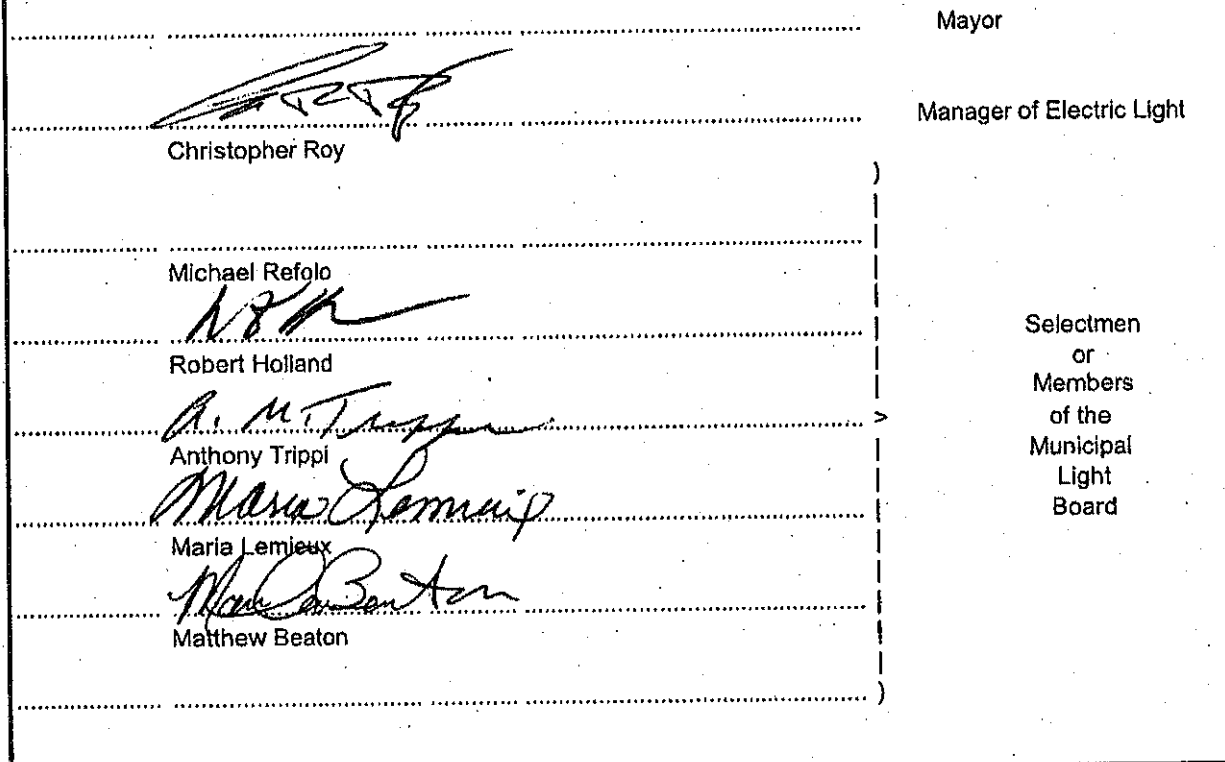 Mayor
Manager of Electric Light
Christopher Roy
Michael Refolo
Robert Holland
A. M. Trippi
Anthony Trippi
Maria Lemieux
Maria Lemieux
Matthew Beaton
Selectmen
or
Members
of the
Municipal
Light
Board